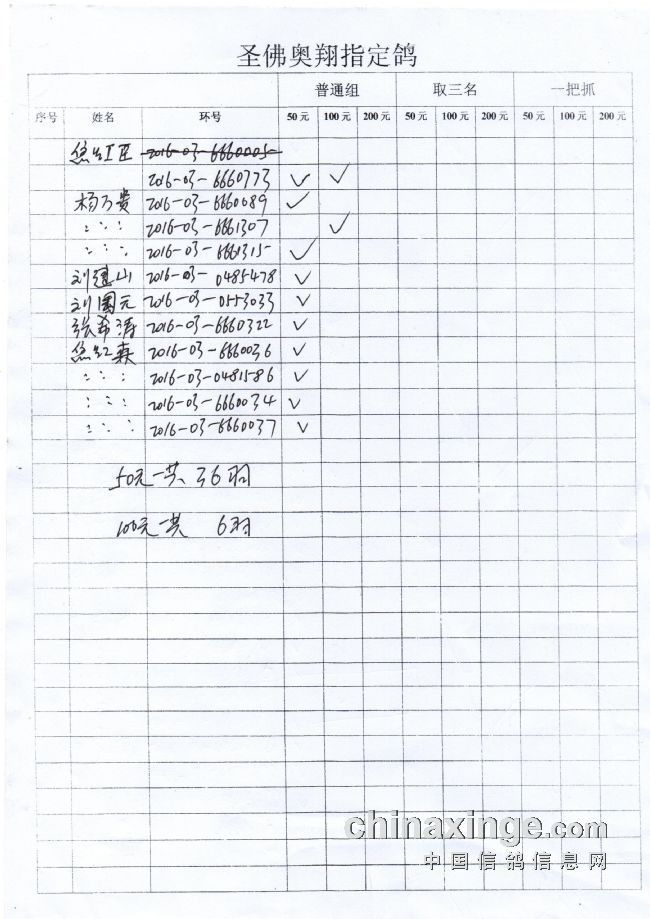 圣佛奥翔指定鸽
普通组 取三名 一把抓
序号 姓名 环号 50元 100元 200元 50元 100元 200元 50元 100元 200元
2016-03-6660005
2016-03-6660773 ✓ ✓
杨万贵 2016-03-6660689 ✓
〃 〃 〃 2016-03-6661307 ✓
〃 〃 〃 2016-03-6661315 ✓
刘建山 2016-03-0485478 ✓
刘国元 2016-03-0553033 ✓
张希涛 2016-03-6660322 ✓
2016-03-6660036 ✓
〃 〃 〃 2016-03-0481586 ✓
〃 〃 〃 2016-03-6660034 ✓
〃 〃 〃 2016-03-6660037 ✓
50元一共 36羽
100元一共 6羽
chinaxinge.com
中国信鸽信息网